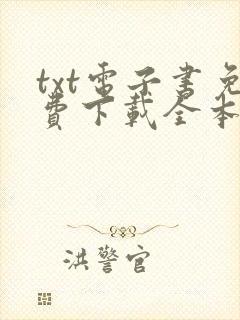 txt電子書免
費下載全本
洪警官